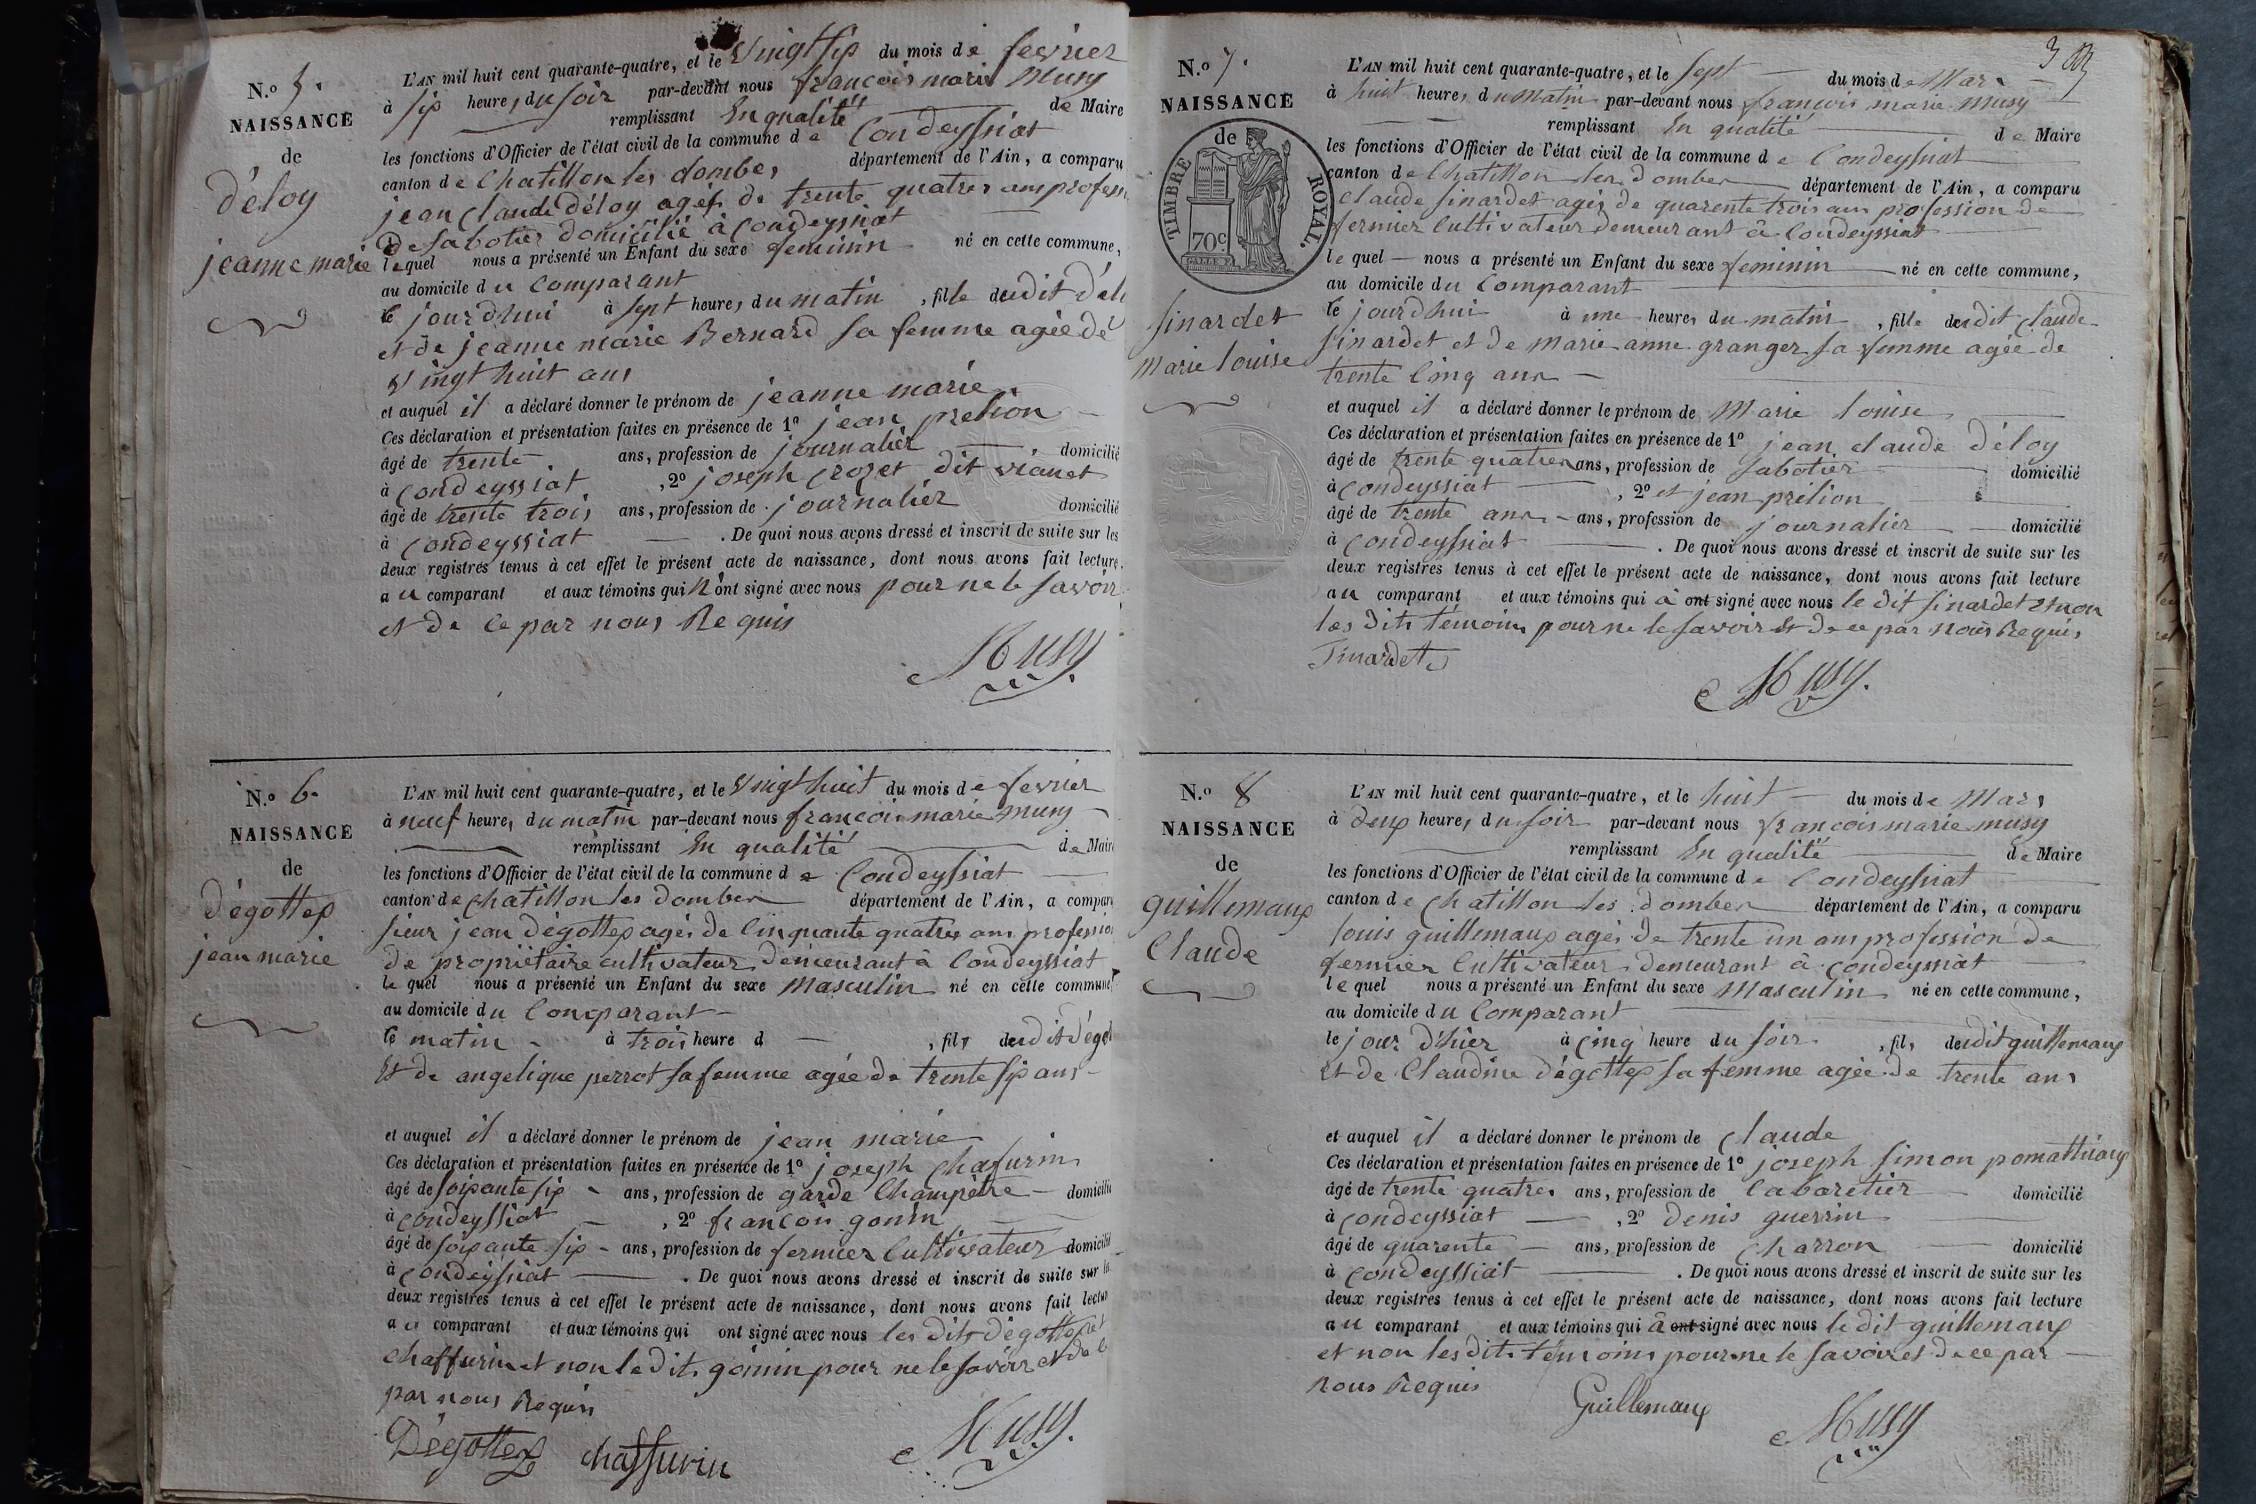 N.o 5.
NAISSANCE
de
déloy
jeanne marie
L'AN mil huit cent quarante-quatre, et le vingt six du mois de fevrier
à six heures du soir par-devant nous francois marie Musy
remplissant En qualité de Maire
les fonctions d'Officier de l'état civil de la commune de Condeyssiat
canton de Chatillon les dombes département de l'Ain, a comparu
jean claude déloy agés de trente quatres ans profess
De sabotier domicilié à Condeyssiat
lequel nous a présenté un Enfant du sexe feminin né en cette commune,
au domicile du Comparant
le jourdhui à sept heures du matin, fille dudit délo
et de jeanne marie Bernard sa femme agée de
vingt huit ans
et auquel il a déclaré donner le prénom de jeanne marie
Ces déclaration et présentation faites en présence de 1º jean prelion
âgé de trente ans, profession de journalier domicilié
à Condeyssiat, 2º joseph crozet dit vianet
âgé de trente trois ans, profession de journalier domicilié
à Condeyssiat. De quoi nous avons dressé et inscrit de suite sur les
deux registres tenus à cet effet le présent acte de naissance, dont nous avons fait lecture
au comparant et aux témoins qui n'ont signé avec nous pour ne le savoir
et de ce par nous Requis
Musy
N.o 6.
NAISSANCE
de
dégottex
jean marie
L'AN mil huit cent quarante-quatre, et le vingt huit du mois de fevrier
à neuf heures du matin par-devant nous francois marie musy
remplissant En qualité de Maire
les fonctions d'Officier de l'état civil de la commune de Condeyssiat
canton de chatillon les dombes département de l'Ain, a comparu
sieur jean dégottex agés de Cinquante quatres ans profession
de propriétaire cultivateur demeurant à Condeyssiat
le quel nous a présenté un Enfant du sexe Masculin né en cette commune
au domicile du Comparant
le matin à trois heure d, fils dudit dégot
Et de angelique perrot sa femme agée de trente six ans
et auquel il a déclaré donner le prénom de jean marie
Ces déclaration et présentation faites en présence de 1º joseph Chafurin
âgé de soixante six ans, profession de garde Champêtre domicilié
à Condeyssiat, 2º francois gonin
âgé de soixante six ans, profession de fermier Cultivateur domicilié
à Condeyssiat. De quoi nous avons dressé et inscrit de suite sur les
deux registres tenus à cet effet le présent acte de naissance, dont nous avons fait lectur
au comparant et aux témoins qui ont signé avec nous les dits dégottex et
chaffurin et non le dit gonin pour ne le savoir et de ce
par nous Requis
Dégottex chaffurin Musy
3
N.o 7.
NAISSANCE
de
TIMBRE ROYAL.
70c.
sinardet
Marie louise
L'AN mil huit cent quarante-quatre, et le sept du mois de Mars
à huit heures du Matin par-devant nous francois marie Musy
remplissant En qualité de Maire
les fonctions d'Officier de l'état civil de la commune de Condeyssiat
canton de Chatillon les dombes département de l'Ain, a comparu
Claude sinardet agés de quarente trois ans profession de
fermier Cultivateur demeurant à Condeyssiat
le quel nous a présenté un Enfant du sexe feminin né en cette commune,
au domicile du Comparant
le jourdhui à une heures du matin, fille dudit Claude
sinardet et de Marie anne granger sa femme agée de
trente Cinq ans
et auquel il a déclaré donner le prénom de Marie louise
Ces déclaration et présentation faites en présence de 1º jean claude déloy
âgé de trente quatres ans, profession de sabotier domicilié
à Condeyssiat, 2º et jean prélion
âgé de trente ans ans, profession de journalier domicilié
à Condeyssiat. De quoi nous avons dressé et inscrit de suite sur les
deux registres tenus à cet effet le présent acte de naissance, dont nous avons fait lecture
au comparant et aux témoins qui à ont signé avec nous le dit sinardet et non
les dits témoins pour ne le savoir et de ce par nous Requis
Sinardet Musy
N.o 8
NAISSANCE
de
guillemaux
Claude
L'AN mil huit cent quarante-quatre, et le huit du mois de Mars
à deux heures du soir par-devant nous francois marie musy
remplissant En qualité de Maire
les fonctions d'Officier de l'état civil de la commune de Condeyssiat
canton de Chatillon les dombes département de l'Ain, a comparu
louis guillemaux agés de trente un ans profession de
fermier Cultivateur demeurant à Condeyssiat
le quel nous a présenté un Enfant du sexe Masculin né en cette commune,
au domicile du Comparant
le jour d'hier à Cinq heure du soir, fils dudit guillemaux
Et de Claudine dégottex sa femme agée de trente ans
et auquel il a déclaré donner le prénom de Claude
Ces déclaration et présentation faites en présence de 1º joseph simon pomathiaux
âgé de trente quatres ans, profession de Cabaretier domicilié
à Condeyssiat, 2º denis guerrin
âgé de quarente ans, profession de Charron domicilié
à Condeyssiat. De quoi nous avons dressé et inscrit de suite sur les
deux registres tenus à cet effet le présent acte de naissance, dont nous avons fait lecture
au comparant et aux témoins qui à ont signé avec nous le dit guillemaux
et non les dits témoins pour ne le savoir et de ce par
nous Requis
Guillemaux Musy